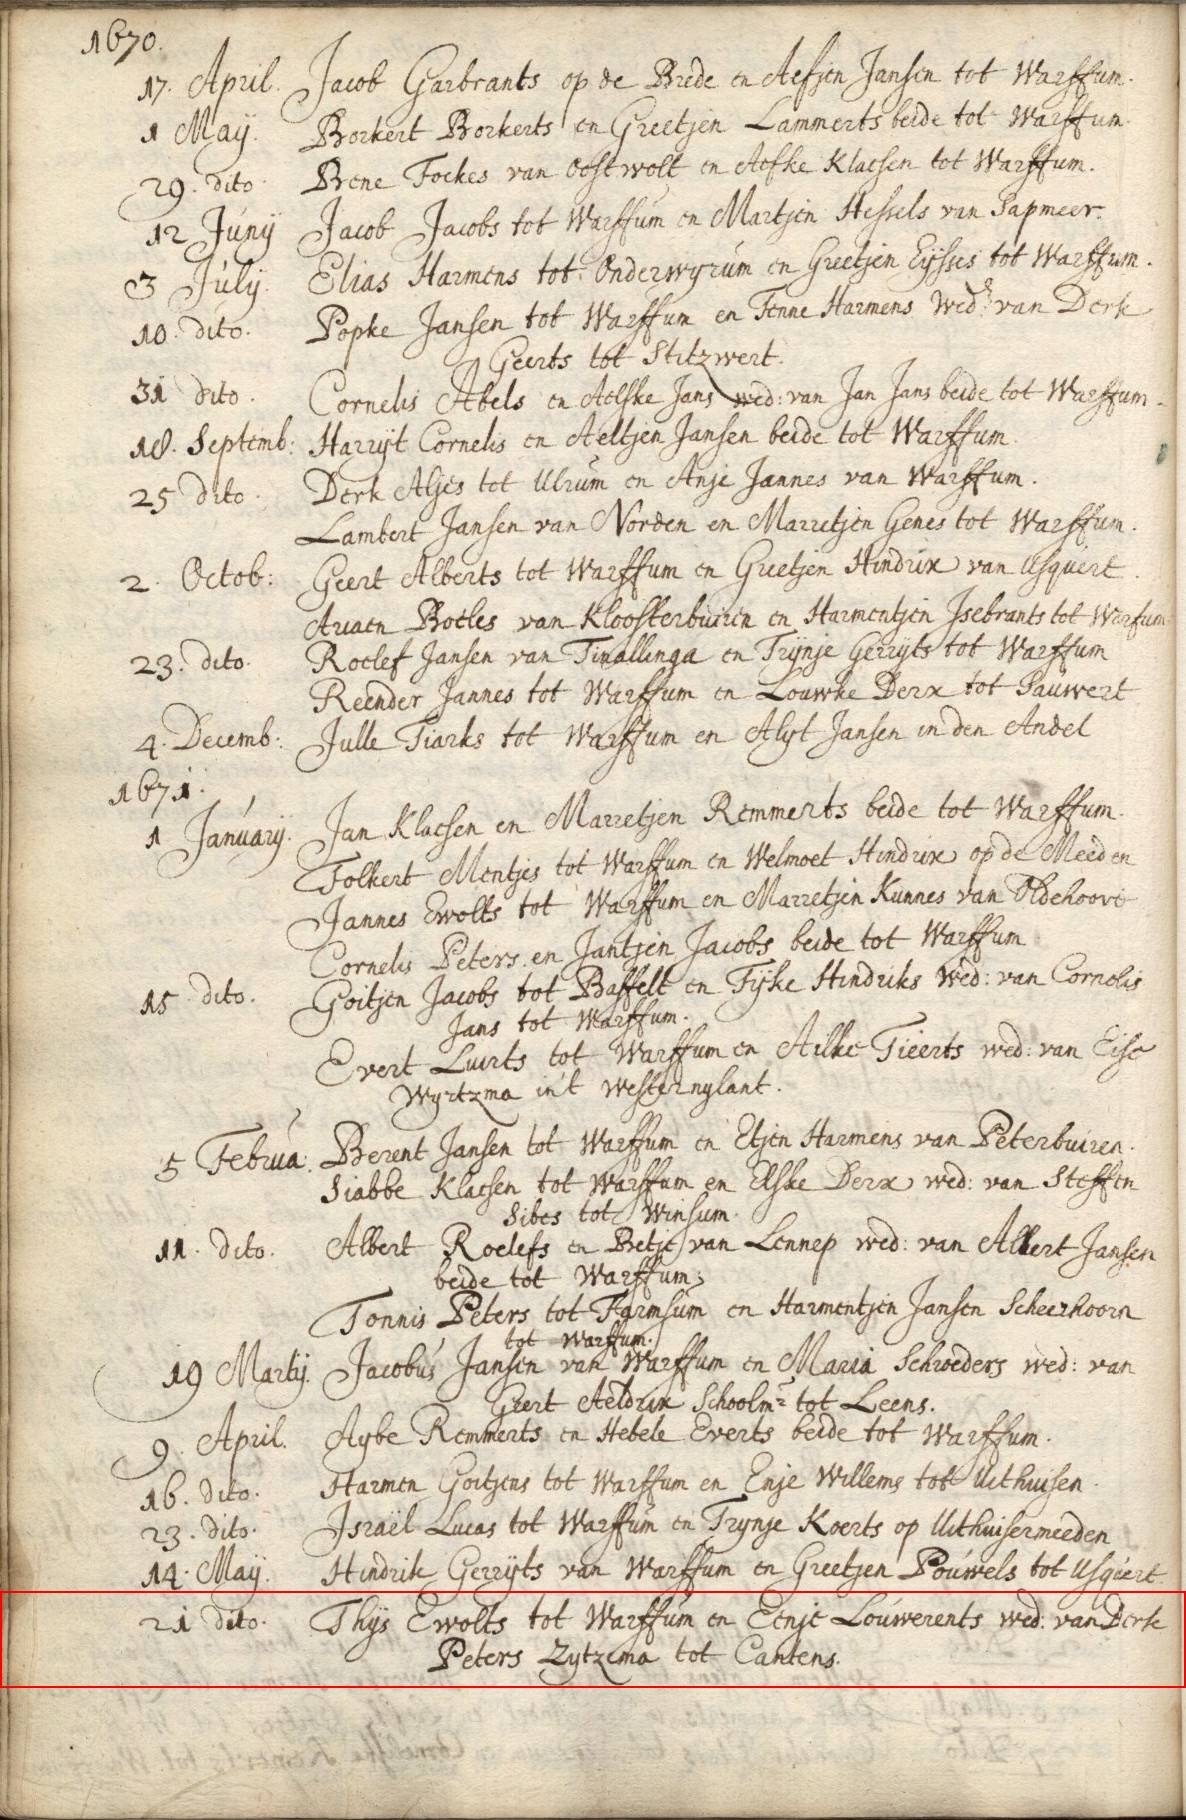 1670.
17. April. Jacob Garbrants op de Brede en Aefjen Jansen tot Warffum.
1 Maÿ. Borkert Borkerts en Greetjen Lammerts beide tot Warffum.
29. dito Bene Fockes van Oostwolt en Aefke Klaesen tot Warffum.
12 Júnÿ Jacob Jacobs tot Warffum en Martjen Hessels van Sapmeer.
3 Júlÿ. Elias Harmens tot Onderwyrúm en Greetjen Eÿsses tot Warffum.
10. dito. Popke Jansen tot Warffum en Tenne Harmens Wed: van Derk
Geerts tot Stitzwert.
31 dito. Cornelis Abels en Aelske Jans wed: van Jan Jans beide tot Warffum.
18. Septemb: Harrÿt Cornelis en Aeltjen Jansen beide tot Warffum.
25 dito. Derk Aljes tot Ulrúm en Anje Jannes van Warffum.
Lambert Jansen van Norden en Marretjen Genes tot Warffum.
2. Octob: Geert Alberts tot Warffum en Greetjen Hindrix van Usqúert.
Boeles van Kloosterbuiren en Harmentjen Isebrants tot Warfum
23. dito. Roelef Jansen van Tinallinga en Trÿnje Gerrÿts tot Warffum
Reender Jannes tot Warffum en Louwke Derx tot Saúwert
4. Decemb: Julle Tiarks tot Warffum en Alÿt Jansen in den Andel
1671.
1 Janúarÿ. Jan Klaesen en Marretjen Remmerts beide tot Warffum.
Folkert Mentjes tot Warffum en Welmoet Hindrix op de Meeden
Jannes Ewolts tot Warffum en Marretjen Kunnes van Oldehoove
Cornelis Peters en Jantjen Jacobs beide tot Warffum
15 dito. Goitjen Jacobs tot Baffelt en Fÿke Hindriks Wed: van Cornelis
Jans tot Warffum.
Evert Luirts tot Warffum en Ailke Tieerts wed: van Eise
Wyrtzma in't westernylant.
5 Februa: Berent Jansen tot Warffum en Etjen Harmens van Peterbuiren.
Siabbe Klaesen tot Warffum en Elske Derx wed: van Steffen
Sibes tot Winsum.
11. dito. Albert Roelefs en Betje van Lennep wed: van Albert Jansen
beide tot Warffum;
Tonnis Peters tot Farmsúm en Harmentjen Jansen Scheerhoorn
tot Warffum.
19 Martÿ. Jacobús Jansen van Warffum en Maria Schroeders wed: van
Geert Aeldrix Schoolmr tot Leens.
9. April. Aybe Remmerts en Hebele Everts beide tot Warffum.
16. dito. Harmen Goitjens tot Warffum en Enje Willems tot Uithuisen.
23. dito. Israël Lucas tot Warffum en Trynje Koerts op Uithuisermeeden
14. Maÿ. Hindrik Gerrÿts van Warffum en Greetjen Poúwels tot Usqúert.
21 dito. Thÿs Ewolts tot Warffúm en Eenje Loúwerents wed: van Derk
Peters Zytzema tot Cantens.